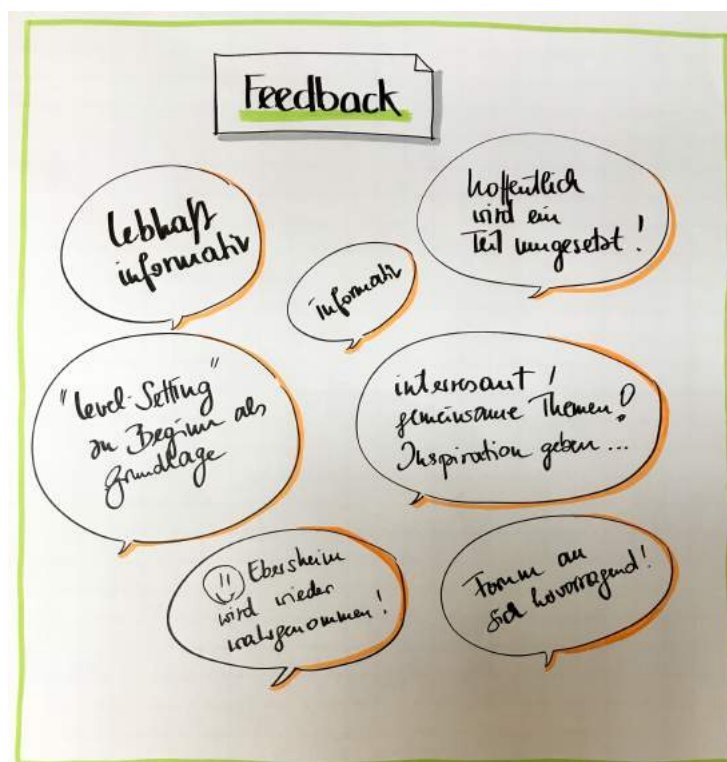 Feedback
lebhaft
informativ
hoffentlich
wird ein
Teil umgesetzt!
informativ
"Level-Setting"
zu Beginn als
Grundlage
interessant!
gemeinsame Themen!
Inspiration geben...
Ebersheim
wird wieder
wahrgenommen!
Forum an
sich hervorragend!